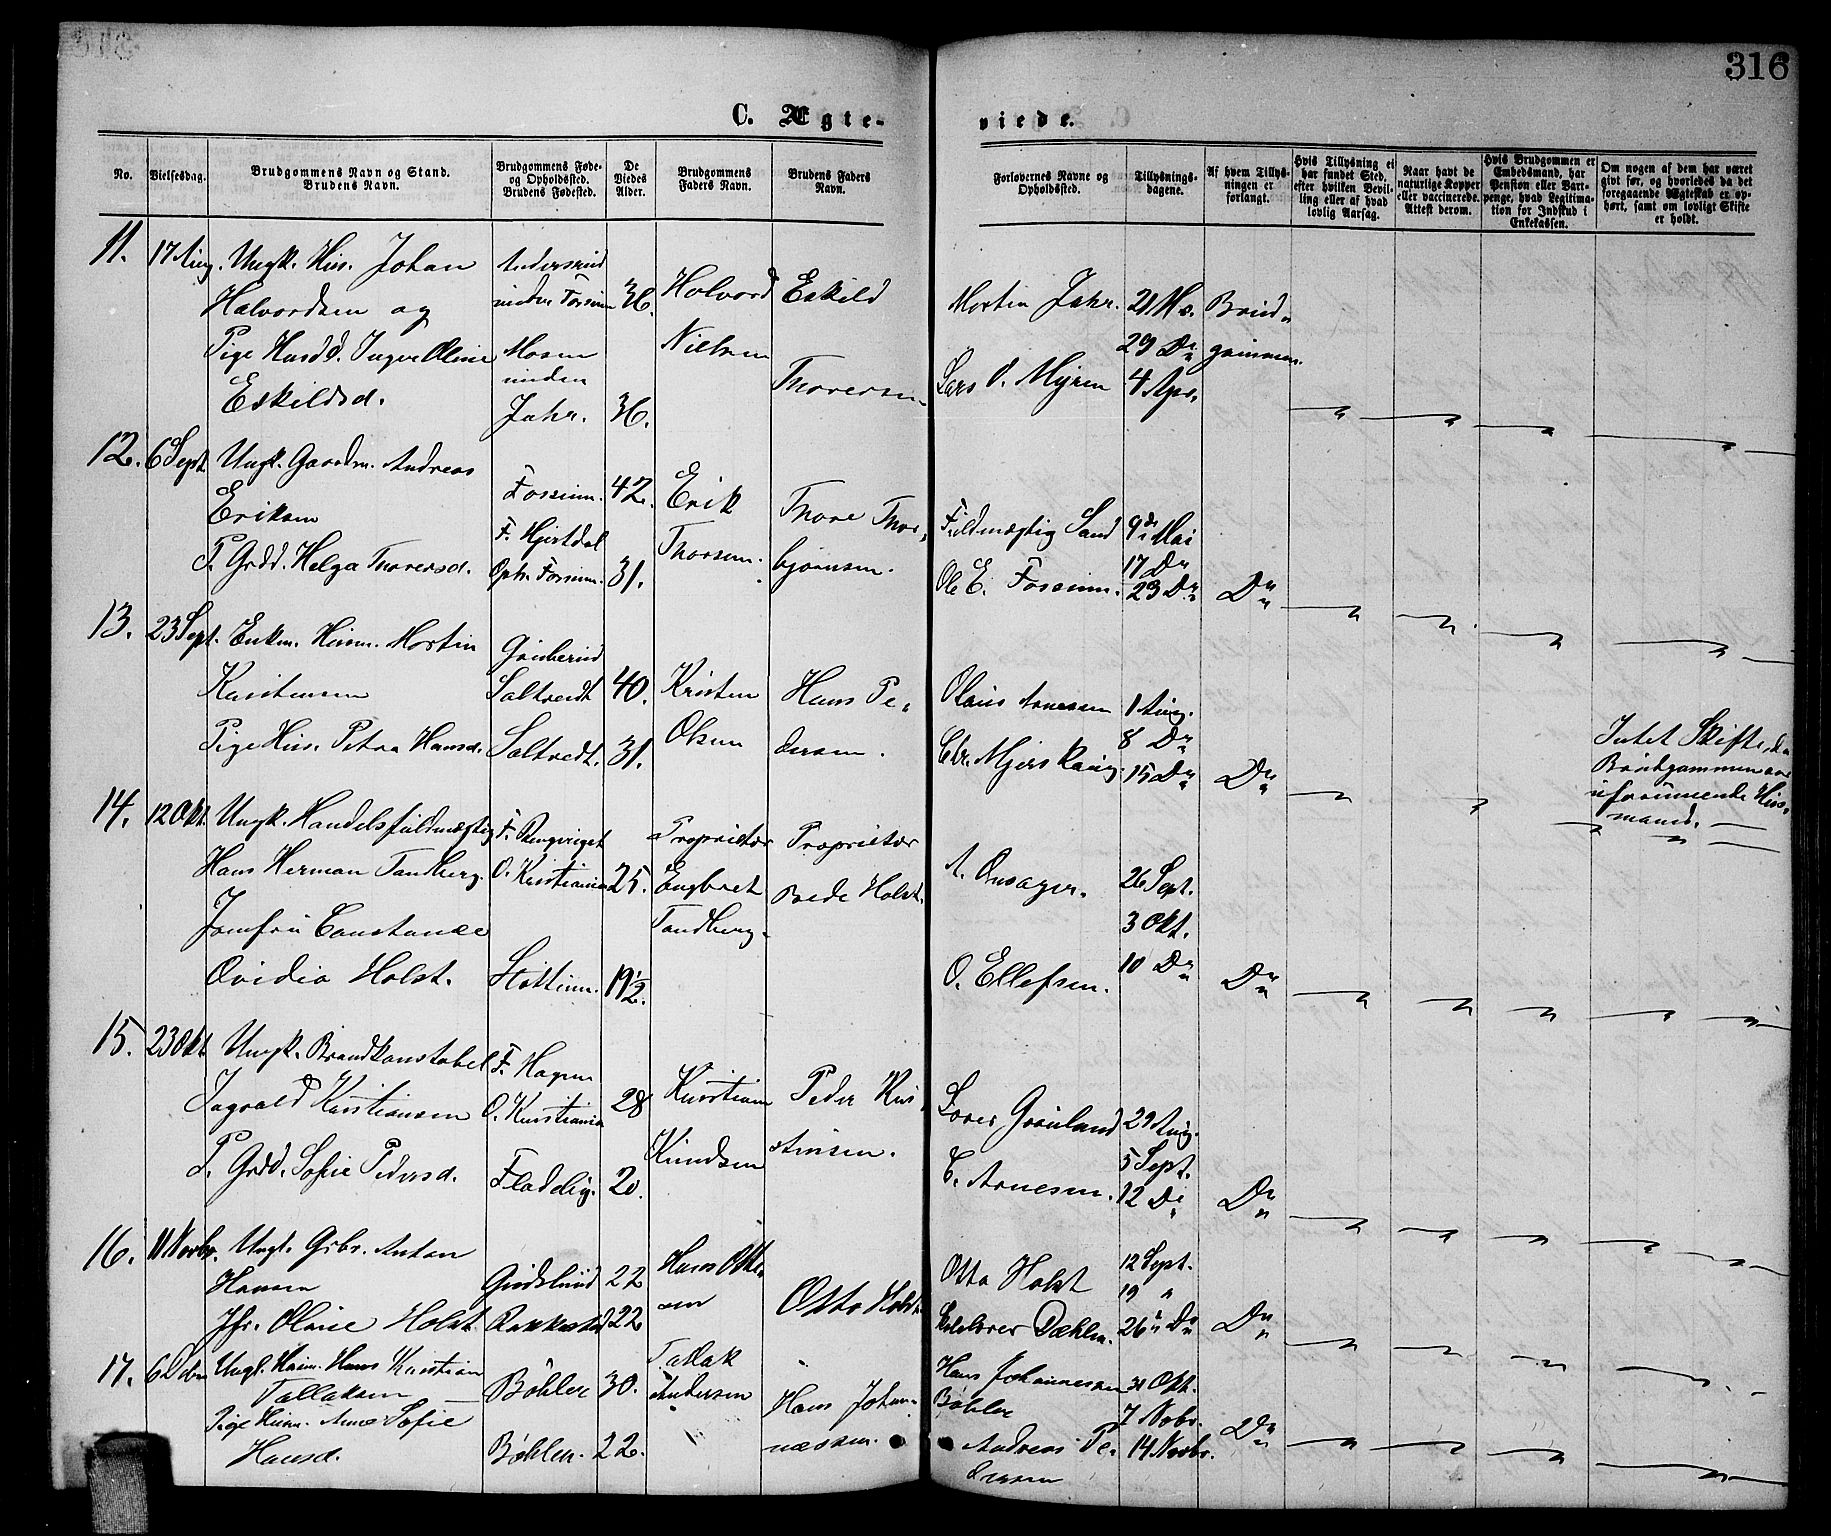 316
C. Ægte-
viede.
No.
Vielsesdag.
Brudgommens Navn og Stand.
Brudens Navn.
Brudgommens Føde-
og Opholdssted.
Brudens Fødested.
De
Viedes
Alder.
Brudgommens
Faders Navn.
Brudens Faders
Navn.
Forlovernes Navne og
Opholdssted.
Tillysnings-
dagene.
Af hvem Tillys-
ningen er
forlangt.
Hvis Tillysning ei
har fundet Sted,
efter hvilken Bevil-
ling eller af hvad
lovlig Aarsag.
Naar havt de
naturlige Kopper
eller vaccinerede.
Attest derom.
Hvis Brudgommen er
Embedsmand, har
Pension eller Vart-
penge, hvad Legitima-
tion for Indskud i
Enkekassen.
Om nogen af dem har været
givt før, og hvorledes da det
foregaaende Ægteskab er op-
hørt, samt om lovligt Skifte
er holdt.
11. 17 Aug. Ungk. Hus. Johan
Halvordsen og
Pige Husd. Inger Oline
Eskildsd.
Andersrud
under Fossum
Mosen
under
Jahr.
36.
36.
Halvord
Nielsen
Eskild
Thoresen
Martin Jahr.
Lars O. Myren
21 Ms.
29 Do
4 Apr.
Brud-
gommen.
12. 6 Sept Ungk. Gaardm. Andreas
Eriksen
P. Grdd. Helga Thoresd.
Fossum.
F. Hjertdal
Oph. Fossum.
42.
31.
Erik
Thorsen.
Thore Thor-
bjørnsen.
Fuldmægtig Sand
Ole E. Fossum.
9de Mai
17 Do
23 Do
Do
13. 23 Sept. Enkm. Husm. Martin
Kristensen
Pige Hus. Petra Hansd.
Gruberud
Saltvedt
Saltvedt.
40.
31.
Kristen
Olsen
Hans Pe-
dersen.
Olaus Arnesen
Chr. Mjerskaug.
1 Aug.
8 Do
15 Do
Do
Intet Skifte, da
Brudgommen var
uformuende Hus-
mand.
14. 12 Okt. Ungk. Handelsfuldmægtig
Hans Herman Tandberg.
Jomfru Constance
Ovidia Holst.
F. Ringeriget
O. Kristiania
Slottum.
25.
19½.
Proprietær
Engbret
Tandberg.
Proprietær
Brede Holst.
A. Onsager.
O. Ellefsen.
26 Sept.
3 Okt.
10 Do
Do
15. 23 Okt Ungk. Brandkonstabel
Ingvald Kristiansen
P. Grdd. Sofie Pedersd.
F. Hagen
O. Kristiania
Fladeby.
28
20.
Kristian
Knudsen
Peder Kri-
stensen.
Lærer Grønland
C. Arnesen.
29 Aug.
5 Sept.
12 Do
Do
16. 11 Novbr. Ungk. Grbr. Anton
Hansen
Jfr. Oline Holst
Gudslund
Rakkestad
22
22
Hans Otte-
sen
Otto Holst
Otto Holst
Kirkelærer Dæhlen.
12 Sept.
19 "
26 Do
Do
17. 6 Debr Ungk. Husm. Hans Kristian
Tallaksen
Pige Husm. Anne Sofie
Hansd.
Bøhler
Bøhler.
30.
22.
Tallak
Andersen
Hans Johan-
nessen.
Hans Johannessen
Bøhler
Andreas Pe-
dersen
31 Okt.
7 Nobr.
14 Novbr.
Do